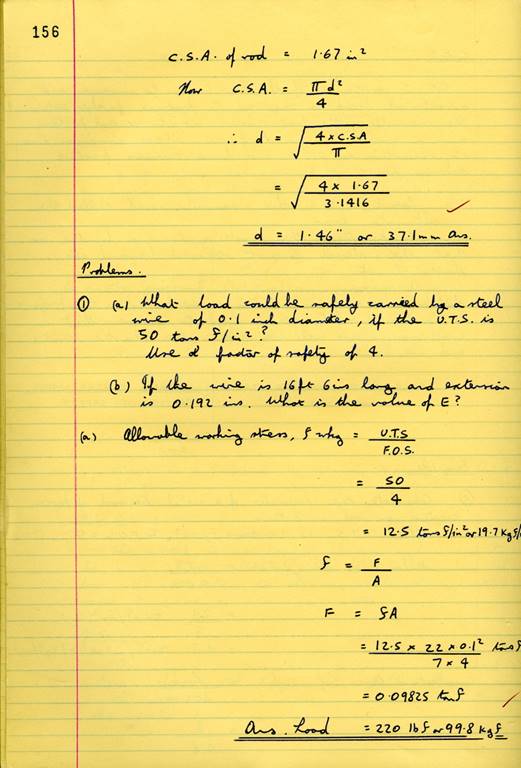 156
C.S.A. of rod = 1.67 in²
Now C.S.A. = πd²/4
∴ d = √(4 × C.S.A/π)
= √(4 × 1.67/3.1416)
d = 1.46" or 37.1mm Ans.
Problems.
① (a) What load could be safely carried by a steel
wire of 0.1 inch diameter, if the U.T.S. is
50 tons f/in²?
Use a factor of safety of 4.
(b) If the wire is 16ft 6ins long and extension
is 0.192 ins. What is the value of E?
(a) Allowable working stress, f wkg = U.T.S/F.O.S.
= 50/4
= 12.5 tons f/in² or 19.7 Kg f/
f = F/A
F = fA
= 12.5 × 22 × 0.1²/7 × 4 tons f
= 0.09825 tonf
Ans. Load = 220 lbf or 99.8 Kgf